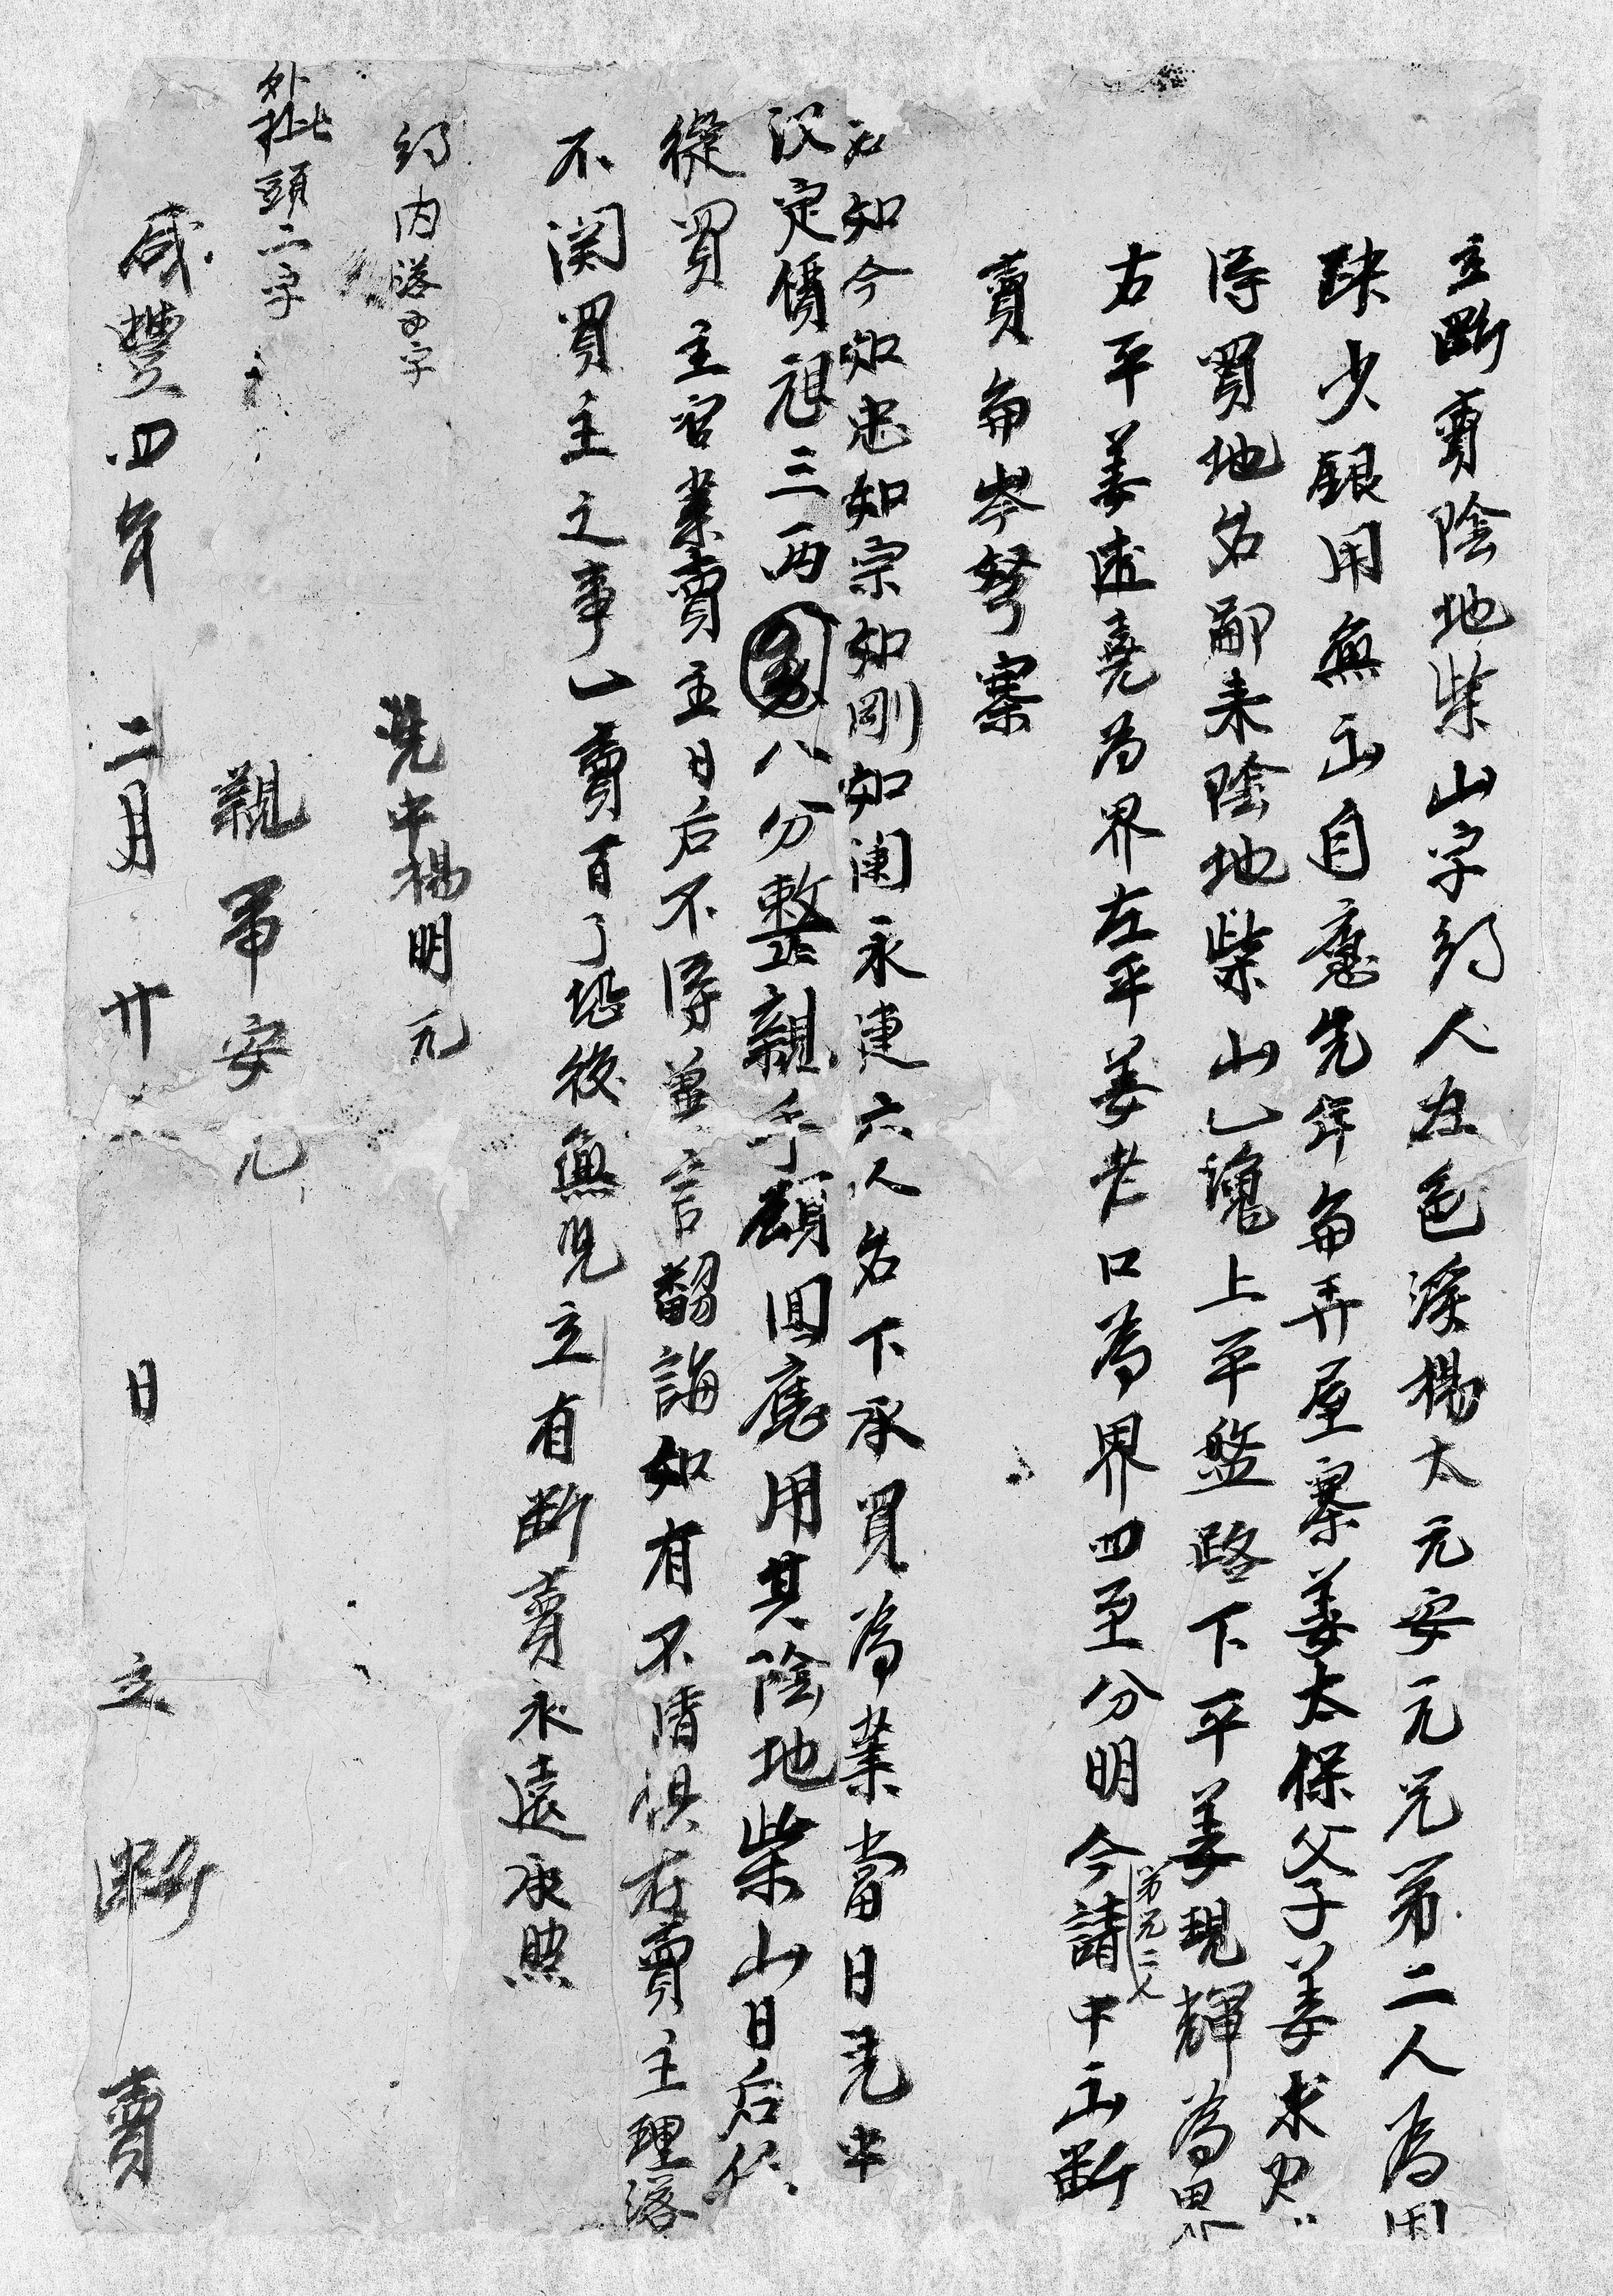 立斷賣陰地柴山字約人五色溪楊太元安元元兄弟二人為因
缺少銀用無出自應先年每弄屋寨姜太保父子姜求
得買地名鄙未陰地柴山乙塊上平盤路下平姜現輝為界
右平姜 堯為界左平姜老口為界四至分明今請中出斷
弟兄二人
賣每岑驽寨
名如今如忠如宗如剛如閑永建六人名下承買為業當日憑中
議定價艮三兩 八分整親手領回應用其陰地柴山日后
從買主官業賣主日后不得異言翻誨如有不清俱在賣主理落
不関買主之事一賣百了恐後無凴立有斷賣永遠承照
約内落 字
外杜頭二字
凴中楊明元
親弟安元
咸豐四年 二月 廿 日 立 斷 賣